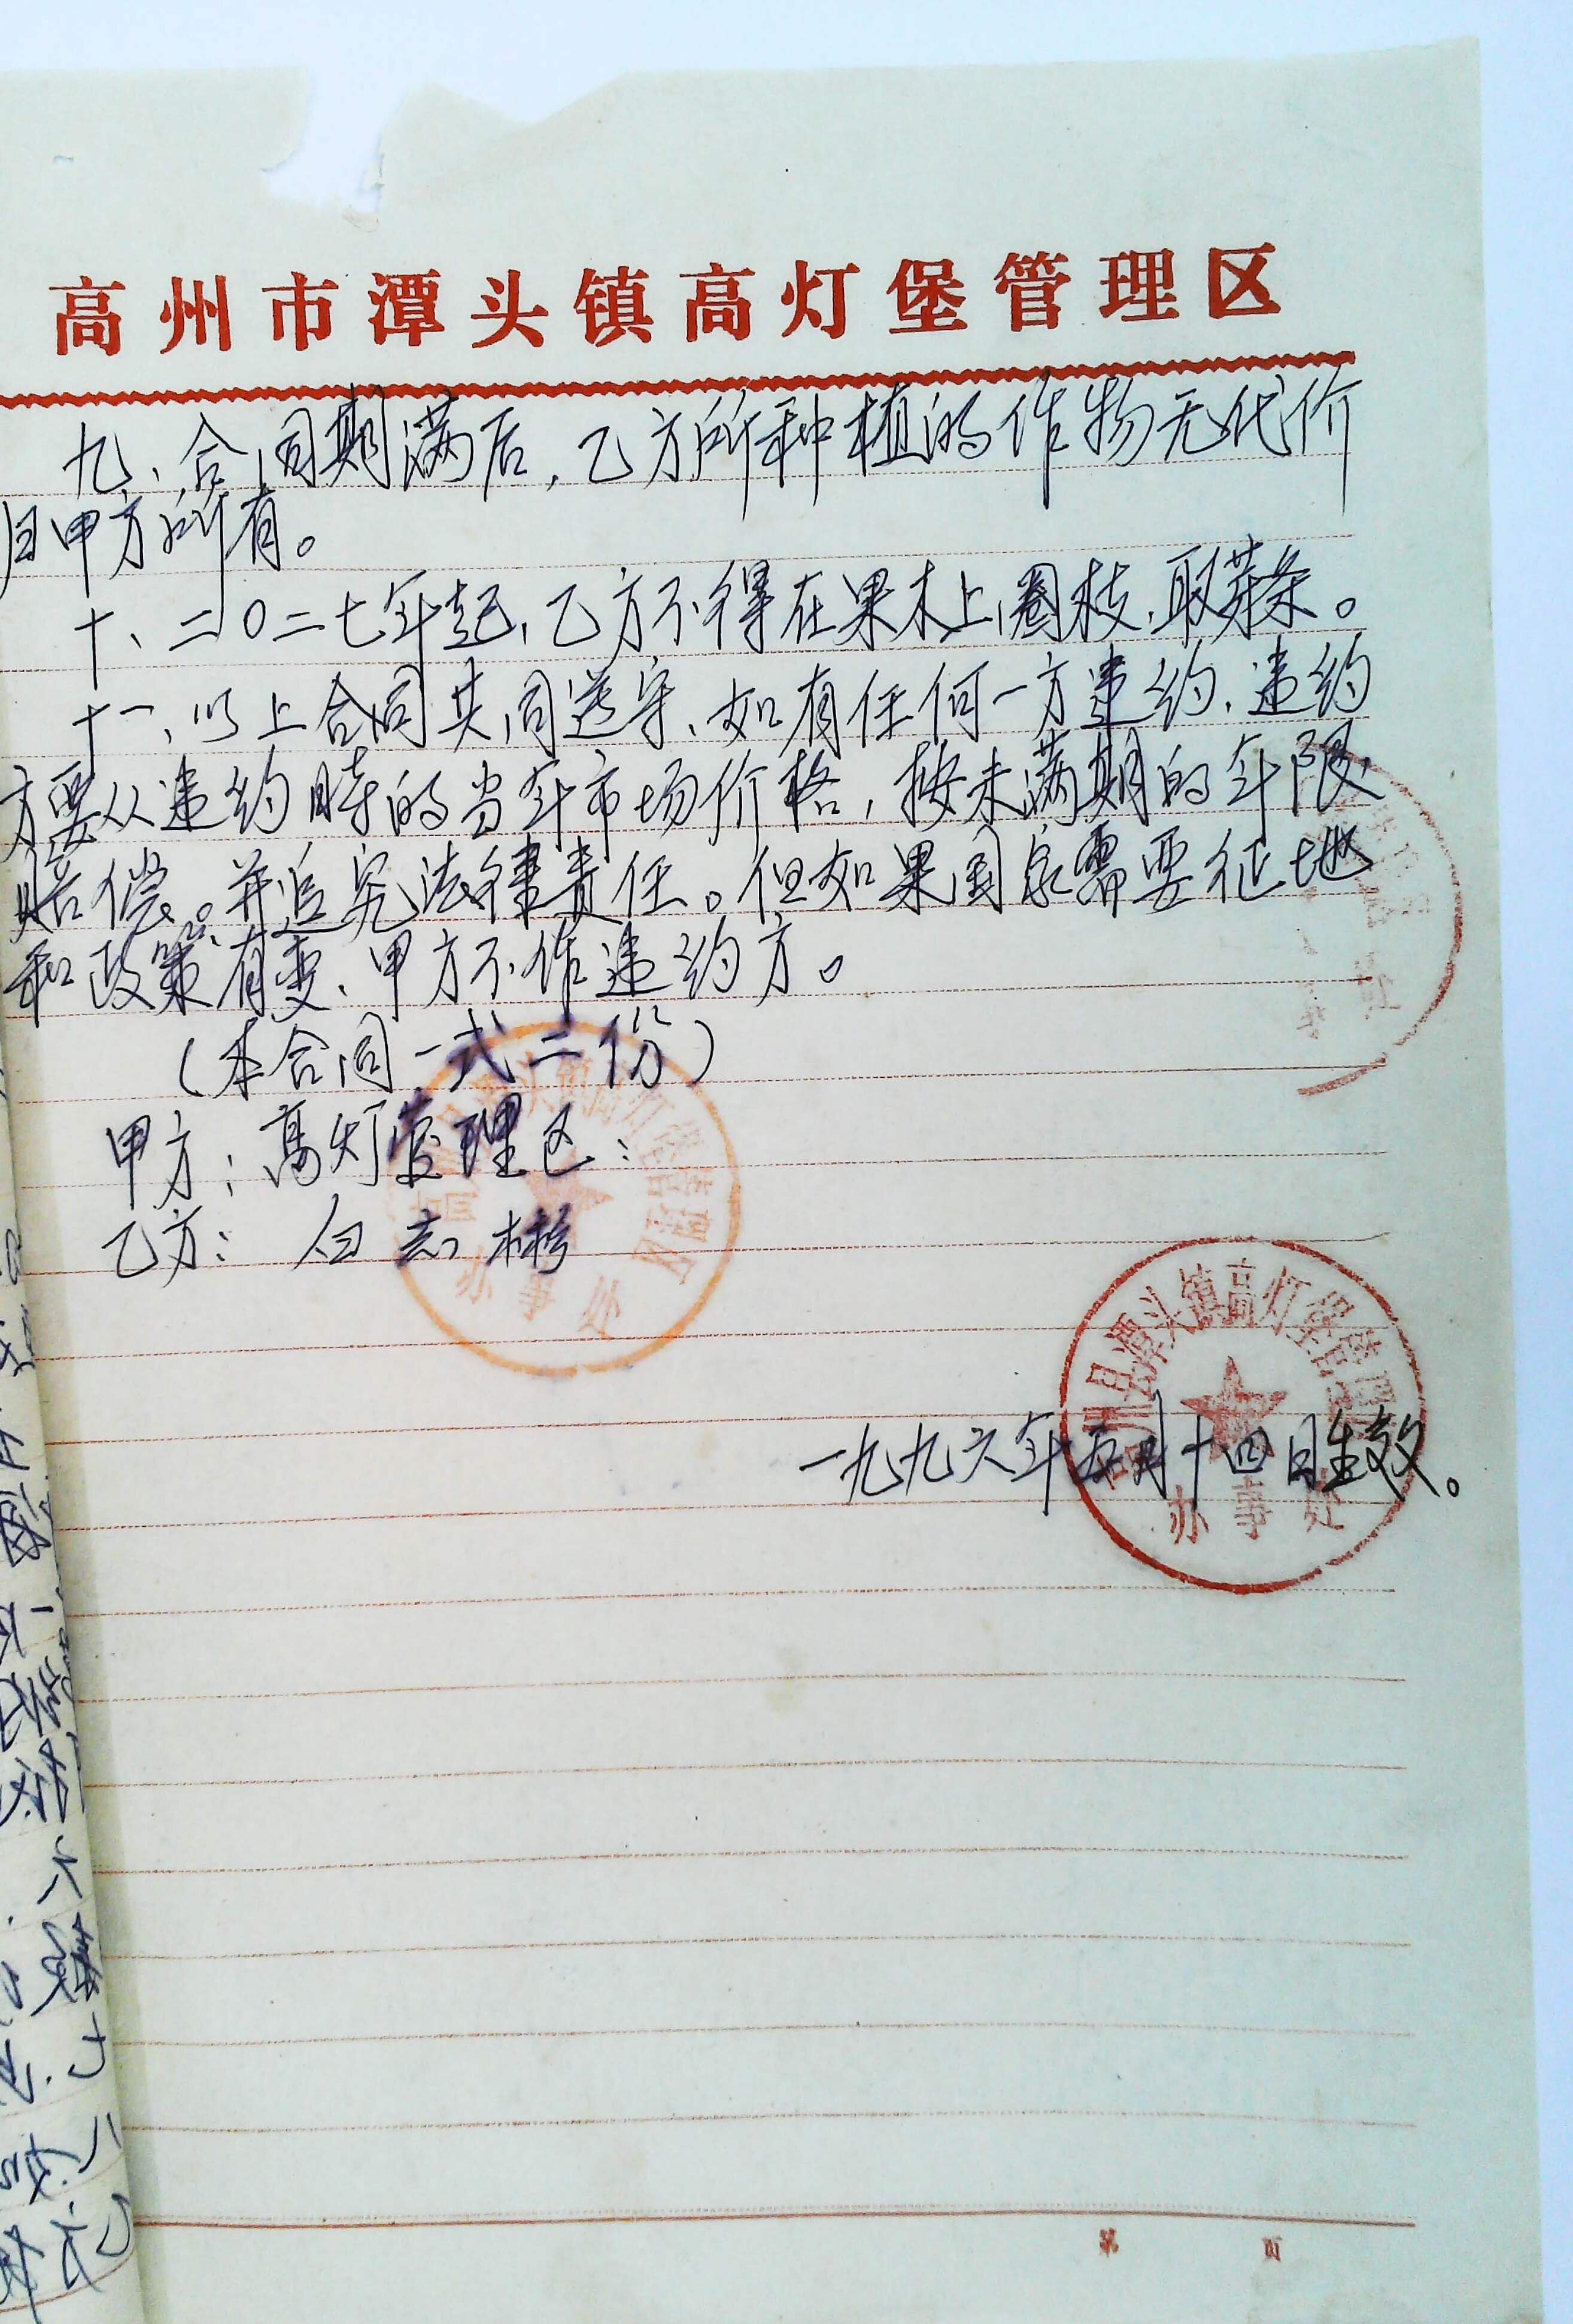 高州市潭头镇高灯堡管理区
九、合同期满后，乙方所种植的作物无代价
归甲方所有。
十、二〇二七年起，乙方不得在果木上圈枝、取芽条。
十一、以上合同共同遵守、如有任何一方违约，违约
方要从违约时的当年市场价格，按未满期的年限
赔偿。并追究法律责任。但如果国家需要征地
和政策有变、甲方不作违约方。
（本合同一式二份）
甲方：高灯管理区：
乙方：白志彬
高州县潭头镇高灯堡管理区
办事处
一九九六年五月十四日生效。
第 页